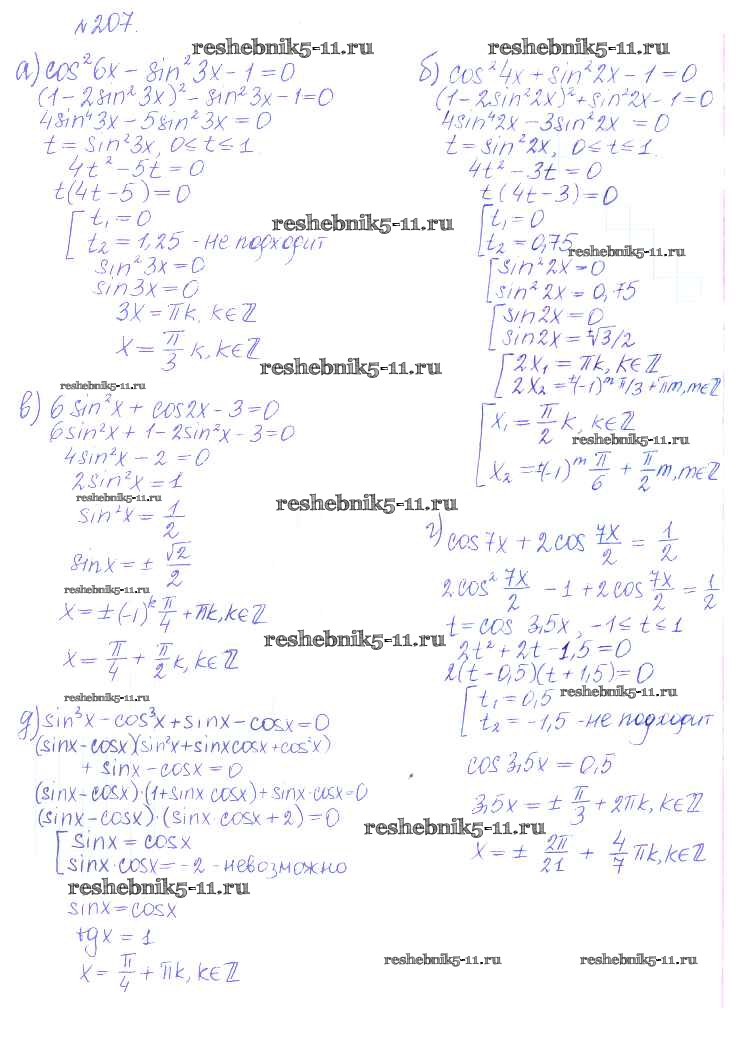 №207.
reshebnik5-11.ru
reshebnik5-11.ru
а) cos²6x – sin²3x – 1 = 0
(1 – 2sin²3x)² – sin²3x – 1 = 0
4sin⁴3x – 5sin²3x = 0
t = sin²3x, 0 ≤ t ≤ 1
4t² – 5t = 0
t(4t – 5) = 0
[ t₁ = 0
t₂ = 1,25 - не подходит
reshebnik5-11.ru
sin²3x = 0
sin3x = 0
3x = πk, k∈ℤ
x = π/3 k, k∈ℤ
reshebnik5-11.ru
б) cos²4x + sin²2x – 1 = 0
(1 – 2sin²2x)² + sin²2x – 1 = 0
4sin⁴2x – 3sin²2x = 0
t = sin²2x, 0 ≤ t ≤ 1
4t² – 3t = 0
t(4t – 3) = 0
[ t₁ = 0
t₂ = 0,75
reshebnik5-11.ru
[ sin²2x = 0
sin²2x = 0,75
[ sin2x = 0
sin2x = ±√3/2
[ 2x₁ = πk, k∈ℤ
2x₂ = ±(-1)ᵐ π/3 + πm, m∈ℤ
[ x₁ = π/2 k, k∈ℤ
reshebnik5-11.ru
x₂ = ±(-1)ᵐ π/6 + π/2 m, m∈ℤ
reshebnik5-11.ru
в) 6sin²x + cos2x – 3 = 0
6sin²x + 1 – 2sin²x – 3 = 0
4sin²x – 2 = 0
2sin²x = 1
reshebnik5-11.ru
reshebnik5-11.ru
sin²x = 1/2
sinx = ± √2/2
reshebnik5-11.ru
x = ±(-1)ᵏ π/4 + πk, k∈ℤ
reshebnik5-11.ru
x = π/4 + π/2 k, k∈ℤ
г) cos7x + 2cos 7x/2 = 1/2
2cos² 7x/2 – 1 + 2cos 7x/2 = 1/2
t = cos 3,5x, –1 ≤ t ≤ 1
2t² + 2t – 1,5 = 0
2(t – 0,5)(t + 1,5) = 0
[ t₁ = 0,5
reshebnik5-11.ru
t₂ = –1,5 - не подходит
cos3,5x = 0,5
3,5x = ± π/3 + 2πk, k∈ℤ
x = ± 2π/21 + 4/7 πk, k∈ℤ
reshebnik5-11.ru
д) sin³x – cos³x + sinx – cosx = 0
(sinx – cosx)(sin²x + sinxcosx + cos²x)
+ sinx – cosx = 0
(sinx – cosx)·(1 + sinxcosx) + sinx·cosx = 0
(sinx – cosx)·(sinx·cosx + 2) = 0
reshebnik5-11.ru
[ sinx = cosx
sinx·cosx = –2 - невозможно
reshebnik5-11.ru
sinx = cosx
tgx = 1
x = π/4 + πk, k∈ℤ
reshebnik5-11.ru
reshebnik5-11.ru